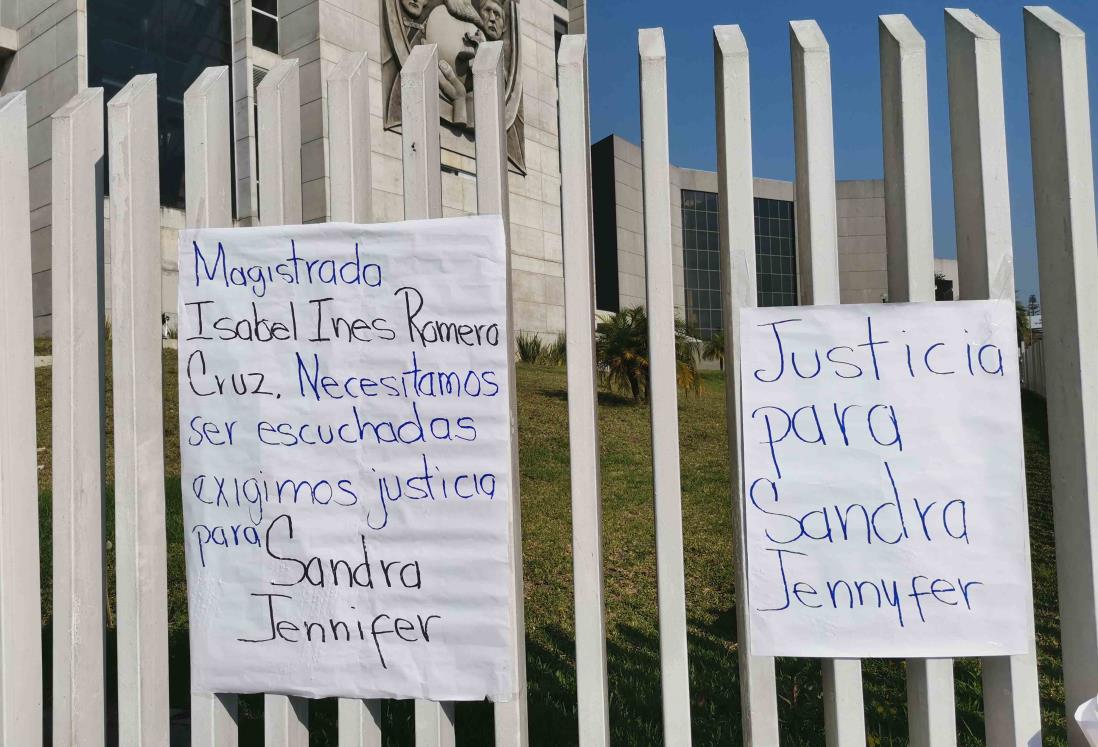 Magistrada
Isabel Ines Romero
Cruz. Necesitamos
ser escuchadas
exigimos justicia
para Sandra
Jennifer
Justicia
para
Sandra
Jennyfer